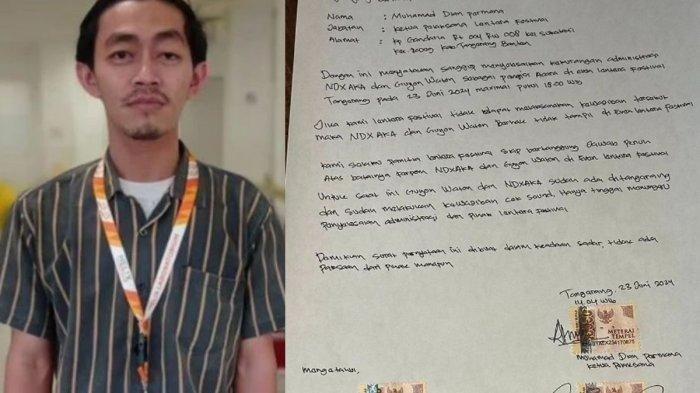 Nama : Muhamad Dian Permana
Jabatan : Ketua pelaksana Lentera Festival
Alamat : Kp Gandaria Rt 004 Rw 008 kel
Kec Kab Tangerang Banten
Dengan ini menyatakan sanggup menyelesaikan kekurangan administrasi
NDXAKA dan Guyon Waton sebagai pengisi Acara di even lentera Festival
Tangerang pada 23 Juni 2024 maximal pukul 18:00 WIB
Jika kami lentera festival tidak dapat melaksanakan kewajiban tersebut
maka NDXAKA dan Guyon Waton Berhak tidak tampil di Even lentera festival
Kami selaku panitia lentera festival siap bertanggung Jawab Penuh
Atas batalnya perform NDXAKA dan Guyon Waton di Even lentera Festival
Untuk saat ini Guyon Waton dan NDXAKA sudah ada ditangerang
dan sudah melakukan kewajiban cek sound, Hanya tinggal menunggu
Penyelesaian administrasi dari pihak lentera festival
Demikian surat pernyataan ini dibuat dalam keadaan sadar, tidak ada
paksaan dari pihak manapun
Tangerang, 23 Juni 2024
14.04 WIB
METERAI
TEMPEL
Muhamad Dian Permana
Ketua Pelaksana
Mengetahui,